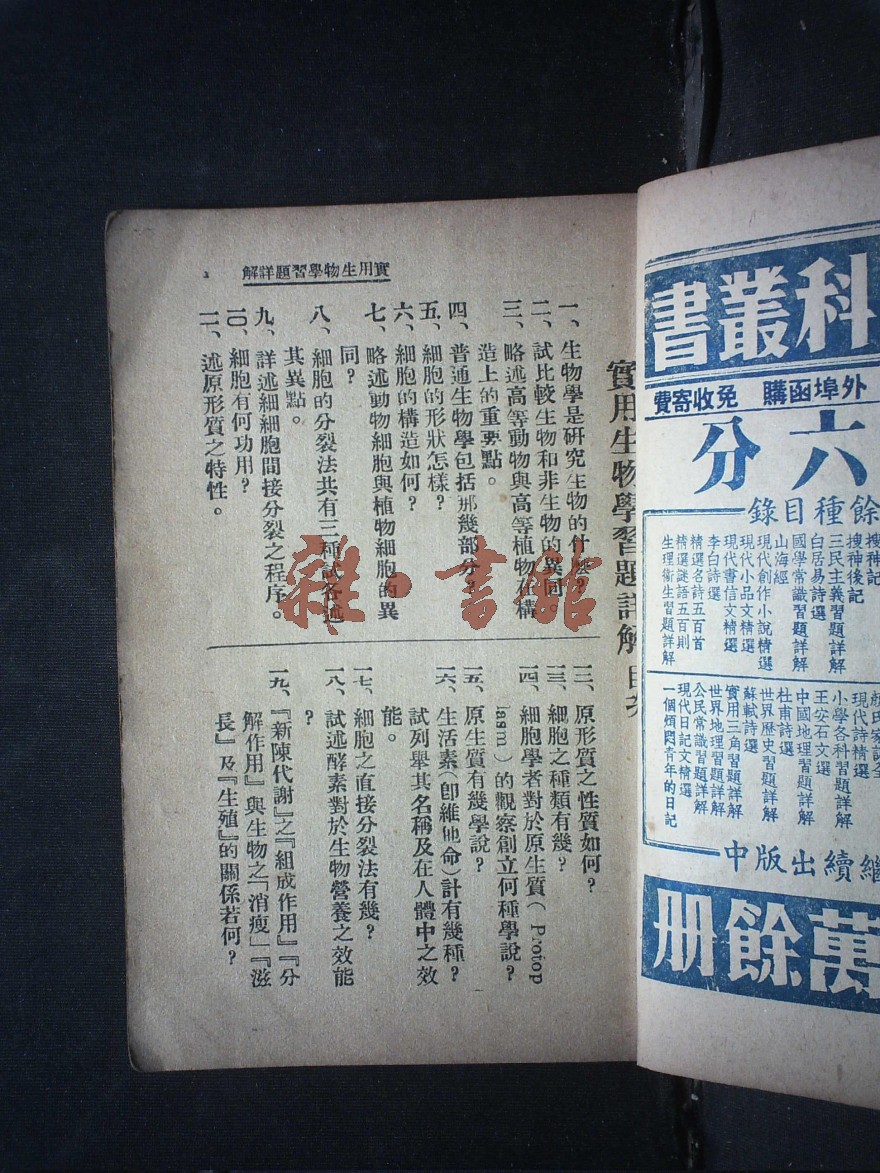 科叢書
外埠函購　免收寄費
六分
餘種目錄
搜神記
搜神後記
三民主義習題詳解
白居易詩選
國學常識習題詳解
山海經
現代創作小說精選
現代小品文精選
現代書信文精選
李白詩選
精選名詩五百首
精選謎語五百則
生理衛生習題詳解
現代詩精選
小學各科習題詳解
王安石文選
中國地理習題詳解
杜甫詩選
世界歷史習題詳解
蘇軾詩選
實用三角習題詳解
世界地理習題詳解
公民常識習題詳解
現代日記文精選
一個煩悶青年的日記
繼續出版中
萬餘册
實用生物學習題詳解
實用生物學習題詳解目次
一、生物學是研究生物的什麼？
二、試比較生物和非生物的異同。
三、略述高等動物與高等植物在構
造上的重要點。
四、普通生物學包括那幾部分？
五、細胞的形狀怎樣？
六、細胞的構造如何？
七、略述動物細胞與植物細胞的異
同？
八、細胞的分裂法共有三種試各述
其異點。
九、詳述細細胞間接分裂之程序。
一〇、細胞有何功用？
一一、述原形質之特性。
一二、原形質之性質如何？
一三、細胞之種類有幾？
一四、細胞學者對於原生質（Protop
lasm）的觀察創立何種學說？
一五、原生質有幾學說？
一六、生活素（卽維他命）計有幾種？
試列舉其名稱及在人體中之效
能。
一七、細胞之直接分裂法有幾？
一八、試述酵素對於生物營養之效能
？
一九、『新陳代謝』之『組成作用』『分
解作用』與生物之『消瘦』『滋
長』及『生殖』的關係若何？
雜·書館